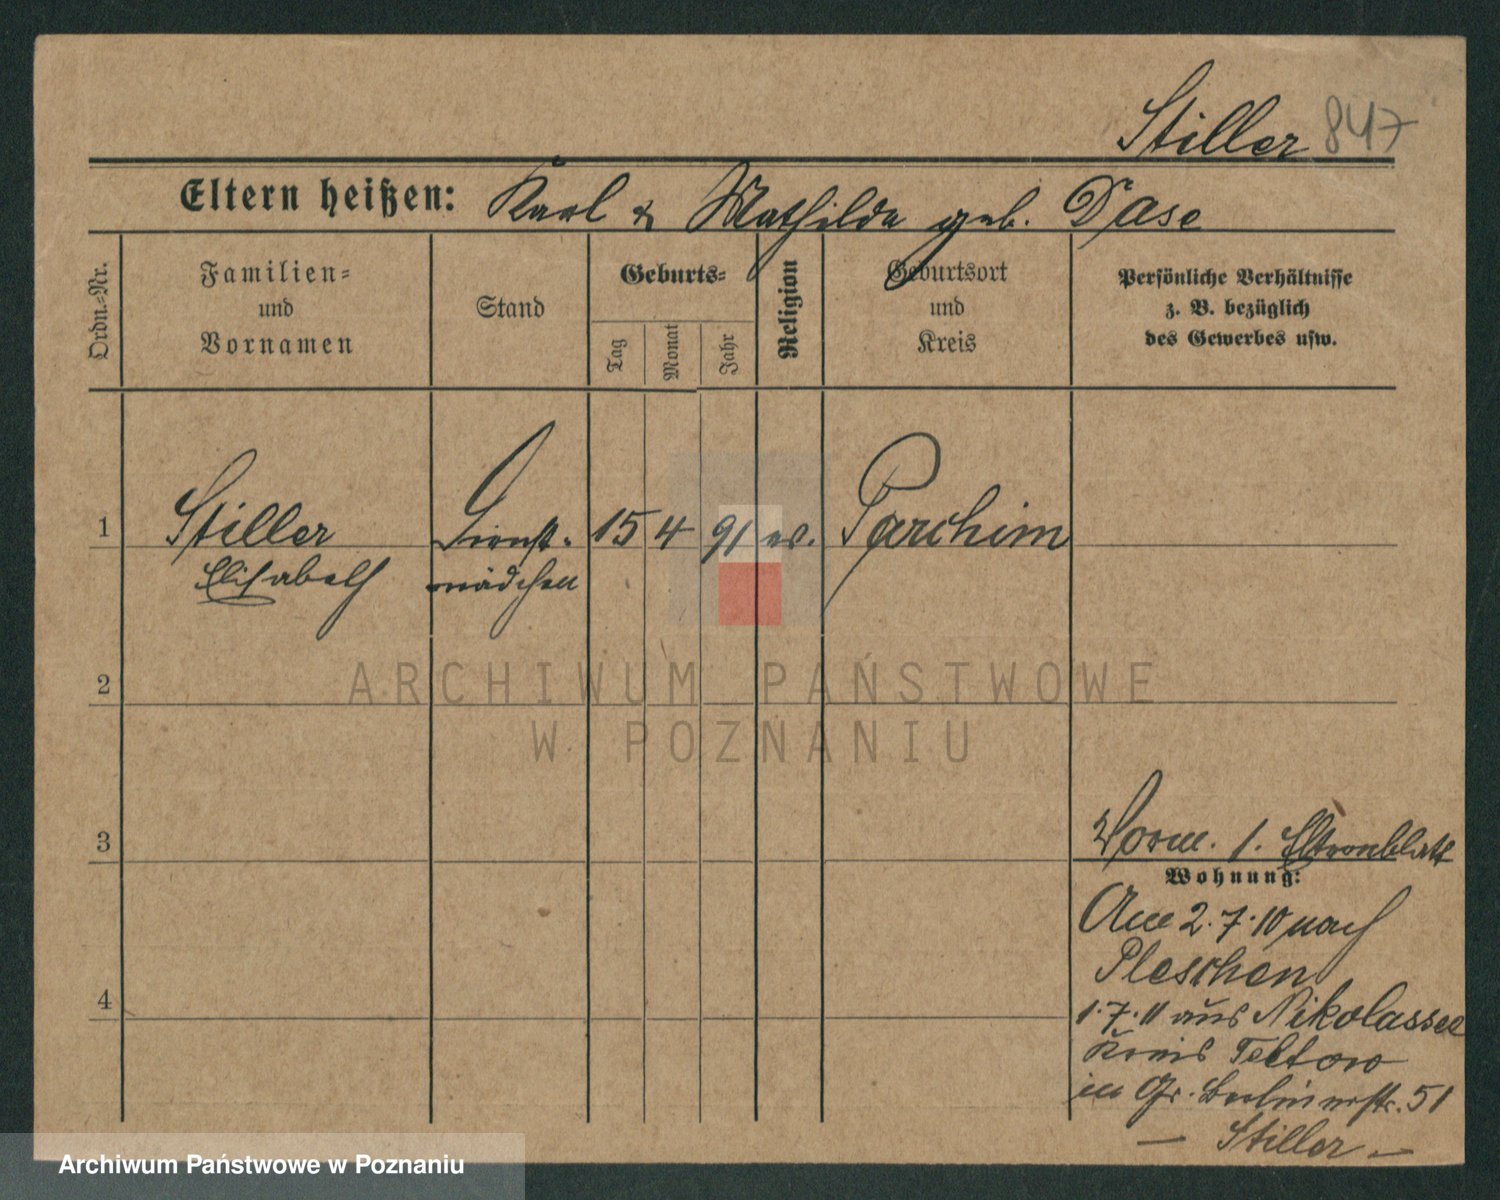 Stiller 847
Eltern heißen: Karl & Mathilde geb. Dase
Ordn.-Nr.
Familien-
und
Vornamen
Stand
Geburts-
Tag
Monat
Jahr
Religion
Geburtsort
und
Kreis
Persönliche Verhältnisse
z. B. bezüglich
des Gewerbes usw.
1 Stiller Dienst- 15 4 91 ev. Parchim
Elisabeth mädchen
2
ARCHIWUM PAŃSTWOWE
W POZNANIU
3
Vorm. 1. Elternblatt
Wohnung:
Am 2.7.10 nach
Pleschen
4
1.7.11 aus Nikolassee
Kreis Teltow
in Gr. Berlinerstr. 51
– Stiller –
Archiwum Państwowe w Poznaniu